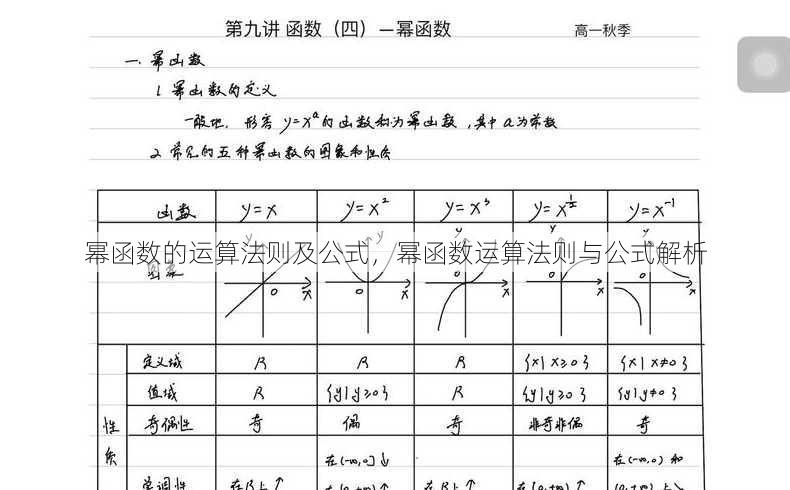 第九讲 函数（四）—幂函数
高一秋季
一. 幂函数
1. 幂函数的定义
一般地, 形容 y=xᵃ的函数称为幂函数, 其中 a为常数
2 常见的五种幂函数的图象和性质
函数 y=x y=x² y=x³ y=x^½ y=x⁻¹
幂函数的运算法则及公式，幂函数运算法则与公式解析
图象
y y y y
o x o x o x o x o x
定义域 R R R {x| x≥0} {x| x≠0}
值域 R {y|y≥0} R {y|y≥0} {y|y≠0}
性质
奇偶性 奇 偶 奇 非奇非偶 奇
在(-∞,0]↓ 在(-∞,0) 和
单调性 在R上↑ 在R上↑